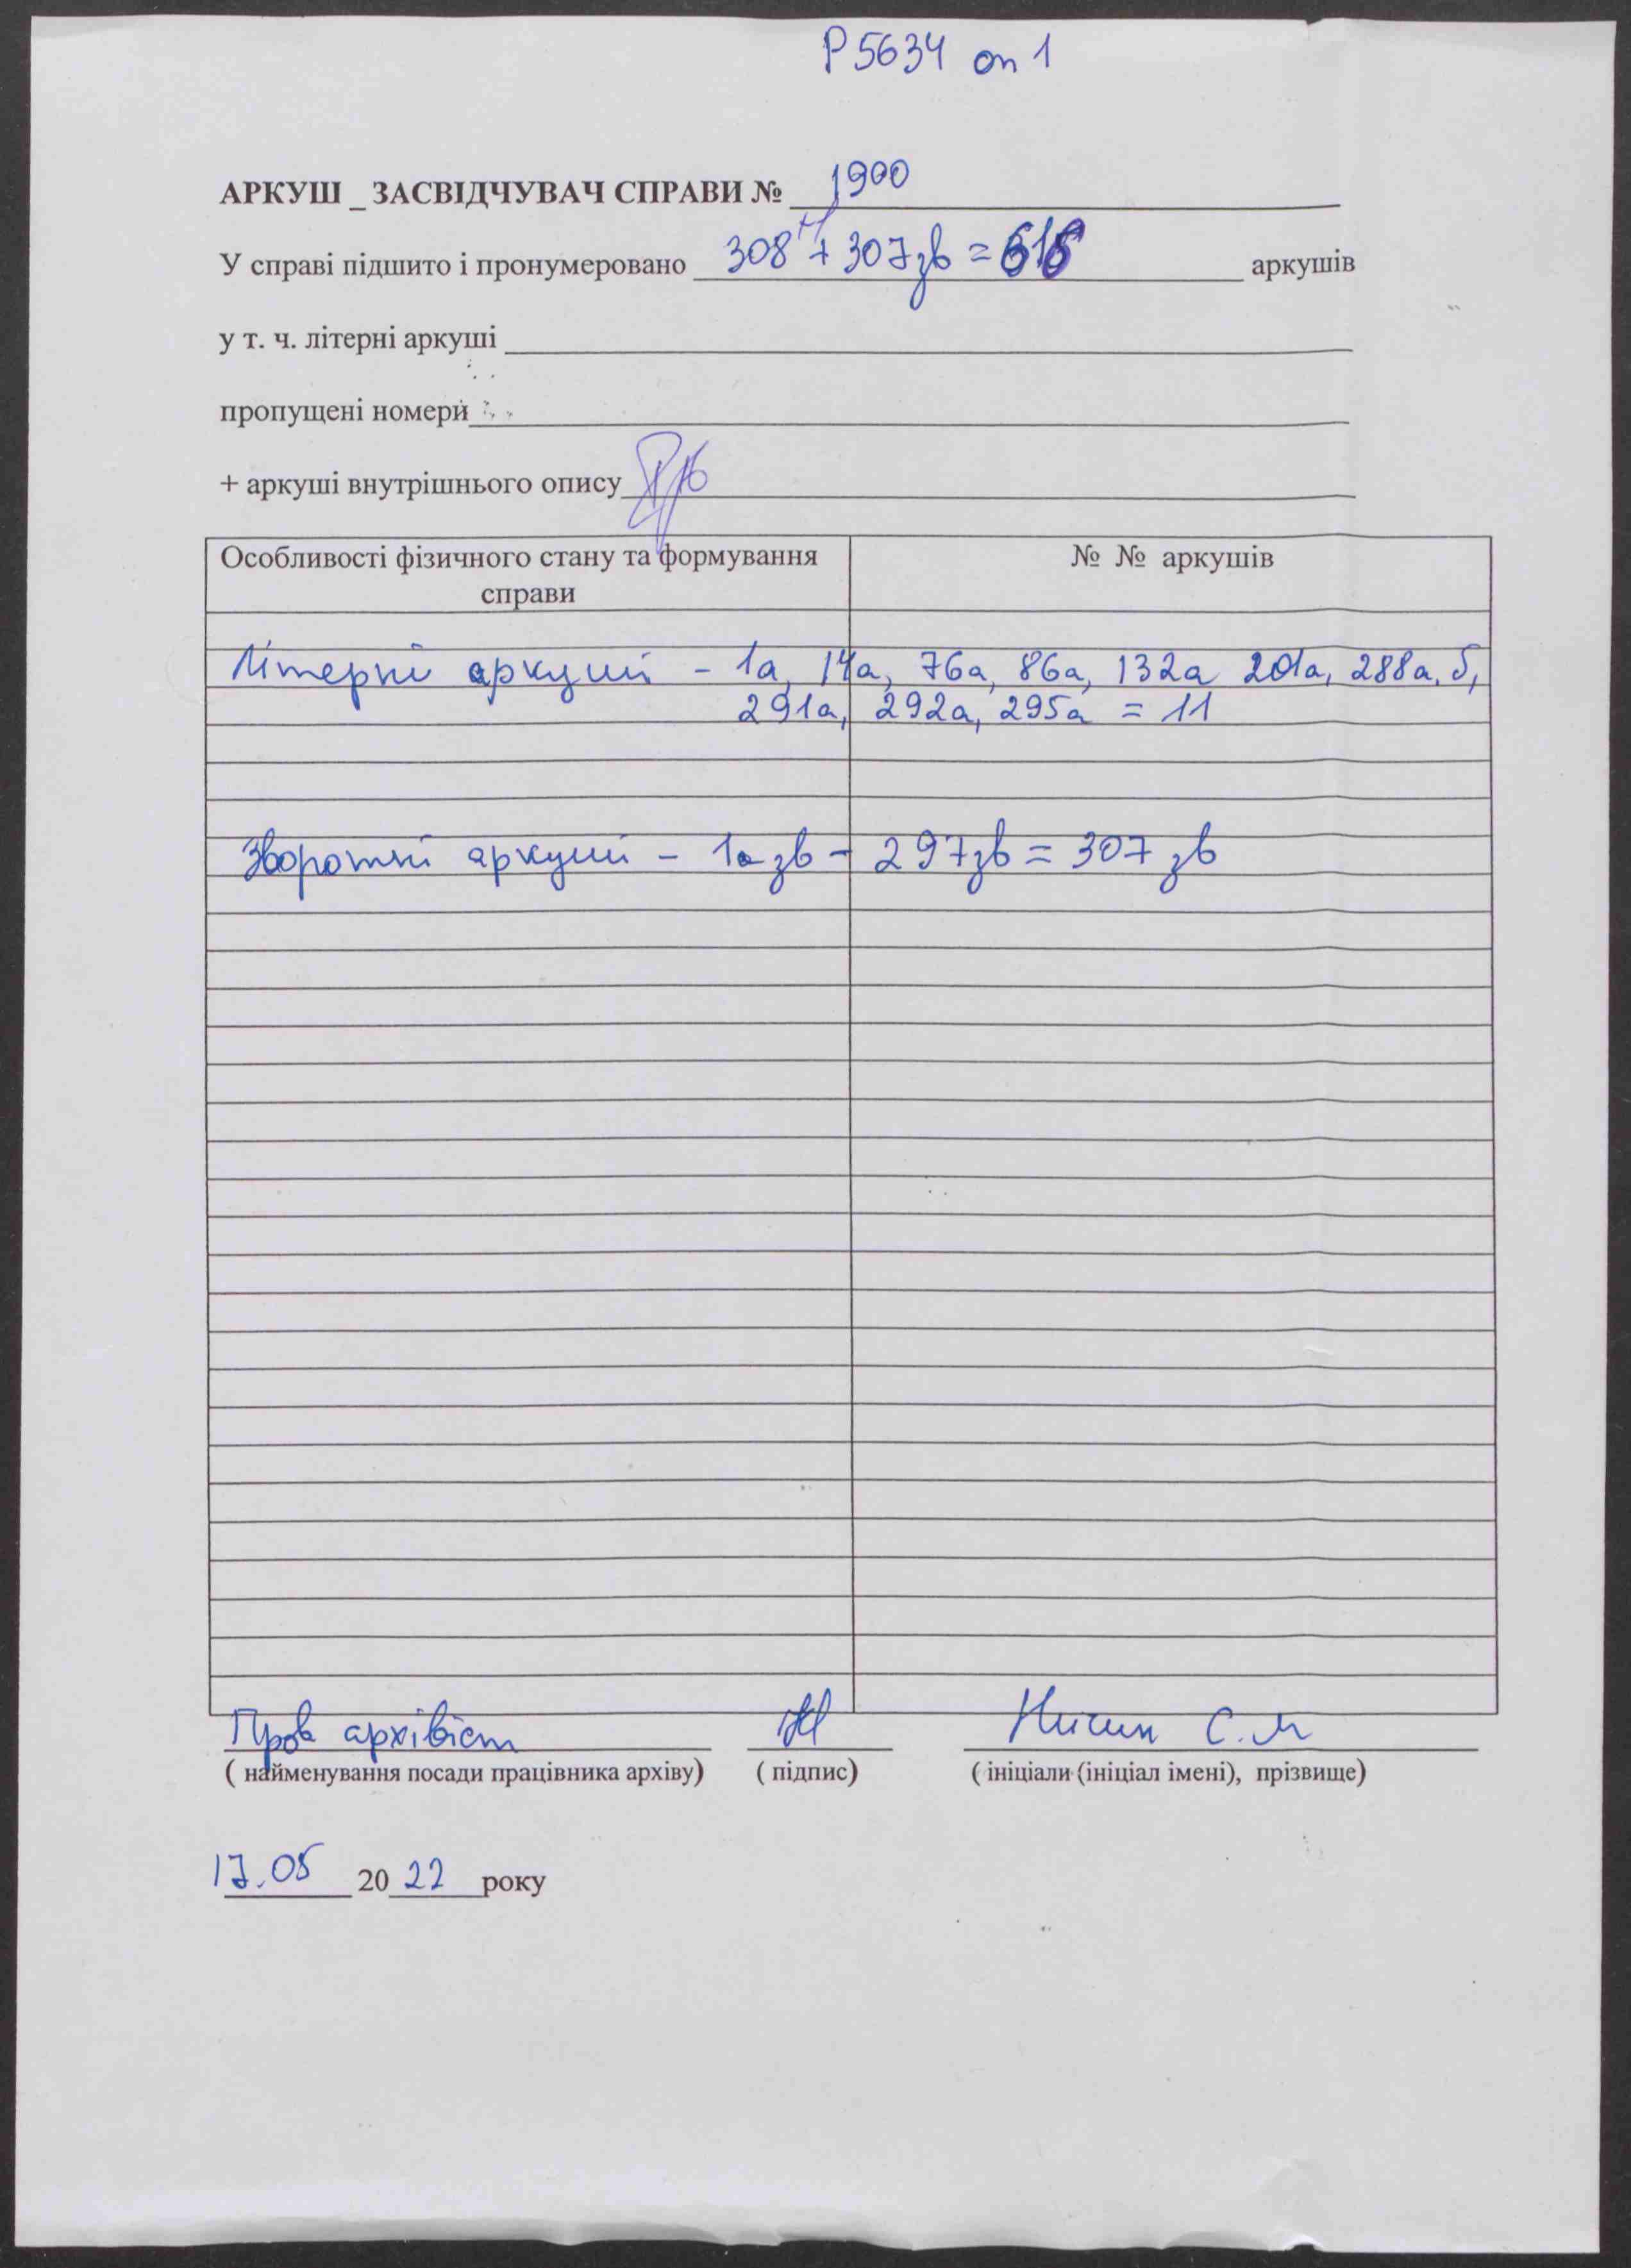 Р 5634 оп 1
АРКУШ _ ЗАСВІДЧУВАЧ СПРАВИ № 1900
У справі підшито і пронумеровано 308 + 307 зв = 616 аркушів
у т. ч. літерні аркуші
пропущені номери
+ аркуші внутрішнього опису
Особливості фізичного стану та формування справи № № аркушів
Літерні аркуші - 1а, 14а, 76а, 86а, 132а 201а, 288а, б,
291а, 292а, 295а = 11
Зворотні аркуші - 1а зв - 297 зв = 307 зв
Пров архівіст С.М
( найменування посади працівника архіву) ( підпис) ( ініціали (ініціал імені), прізвище)
17.05 20 22 року